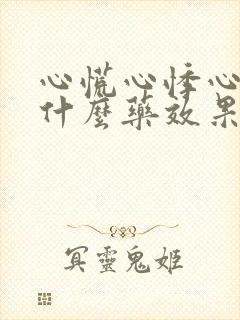 心慌心悸心
什麼藥效果
冥靈鬼姬